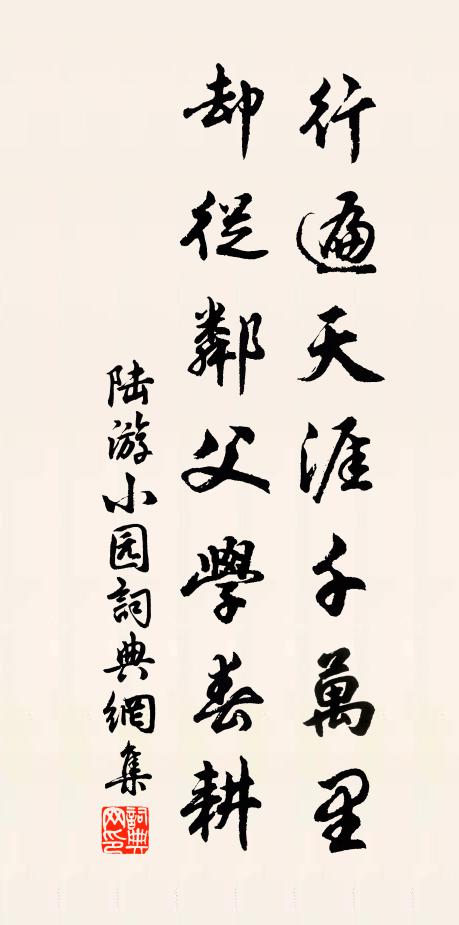 行遍天涯千萬里
却從鄰父學春耕
陆游小园詞典網集
詞典网印